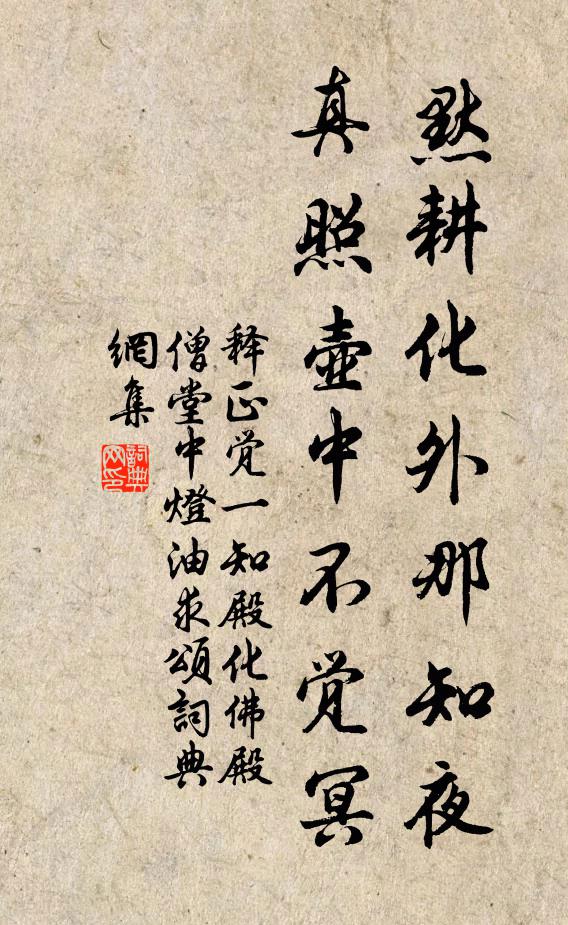 默耕化外那知夜
真照壺中不觉冥
释正觉一知殿化佛殿
僧堂中燈油求頌詞典
網集
詞典網印